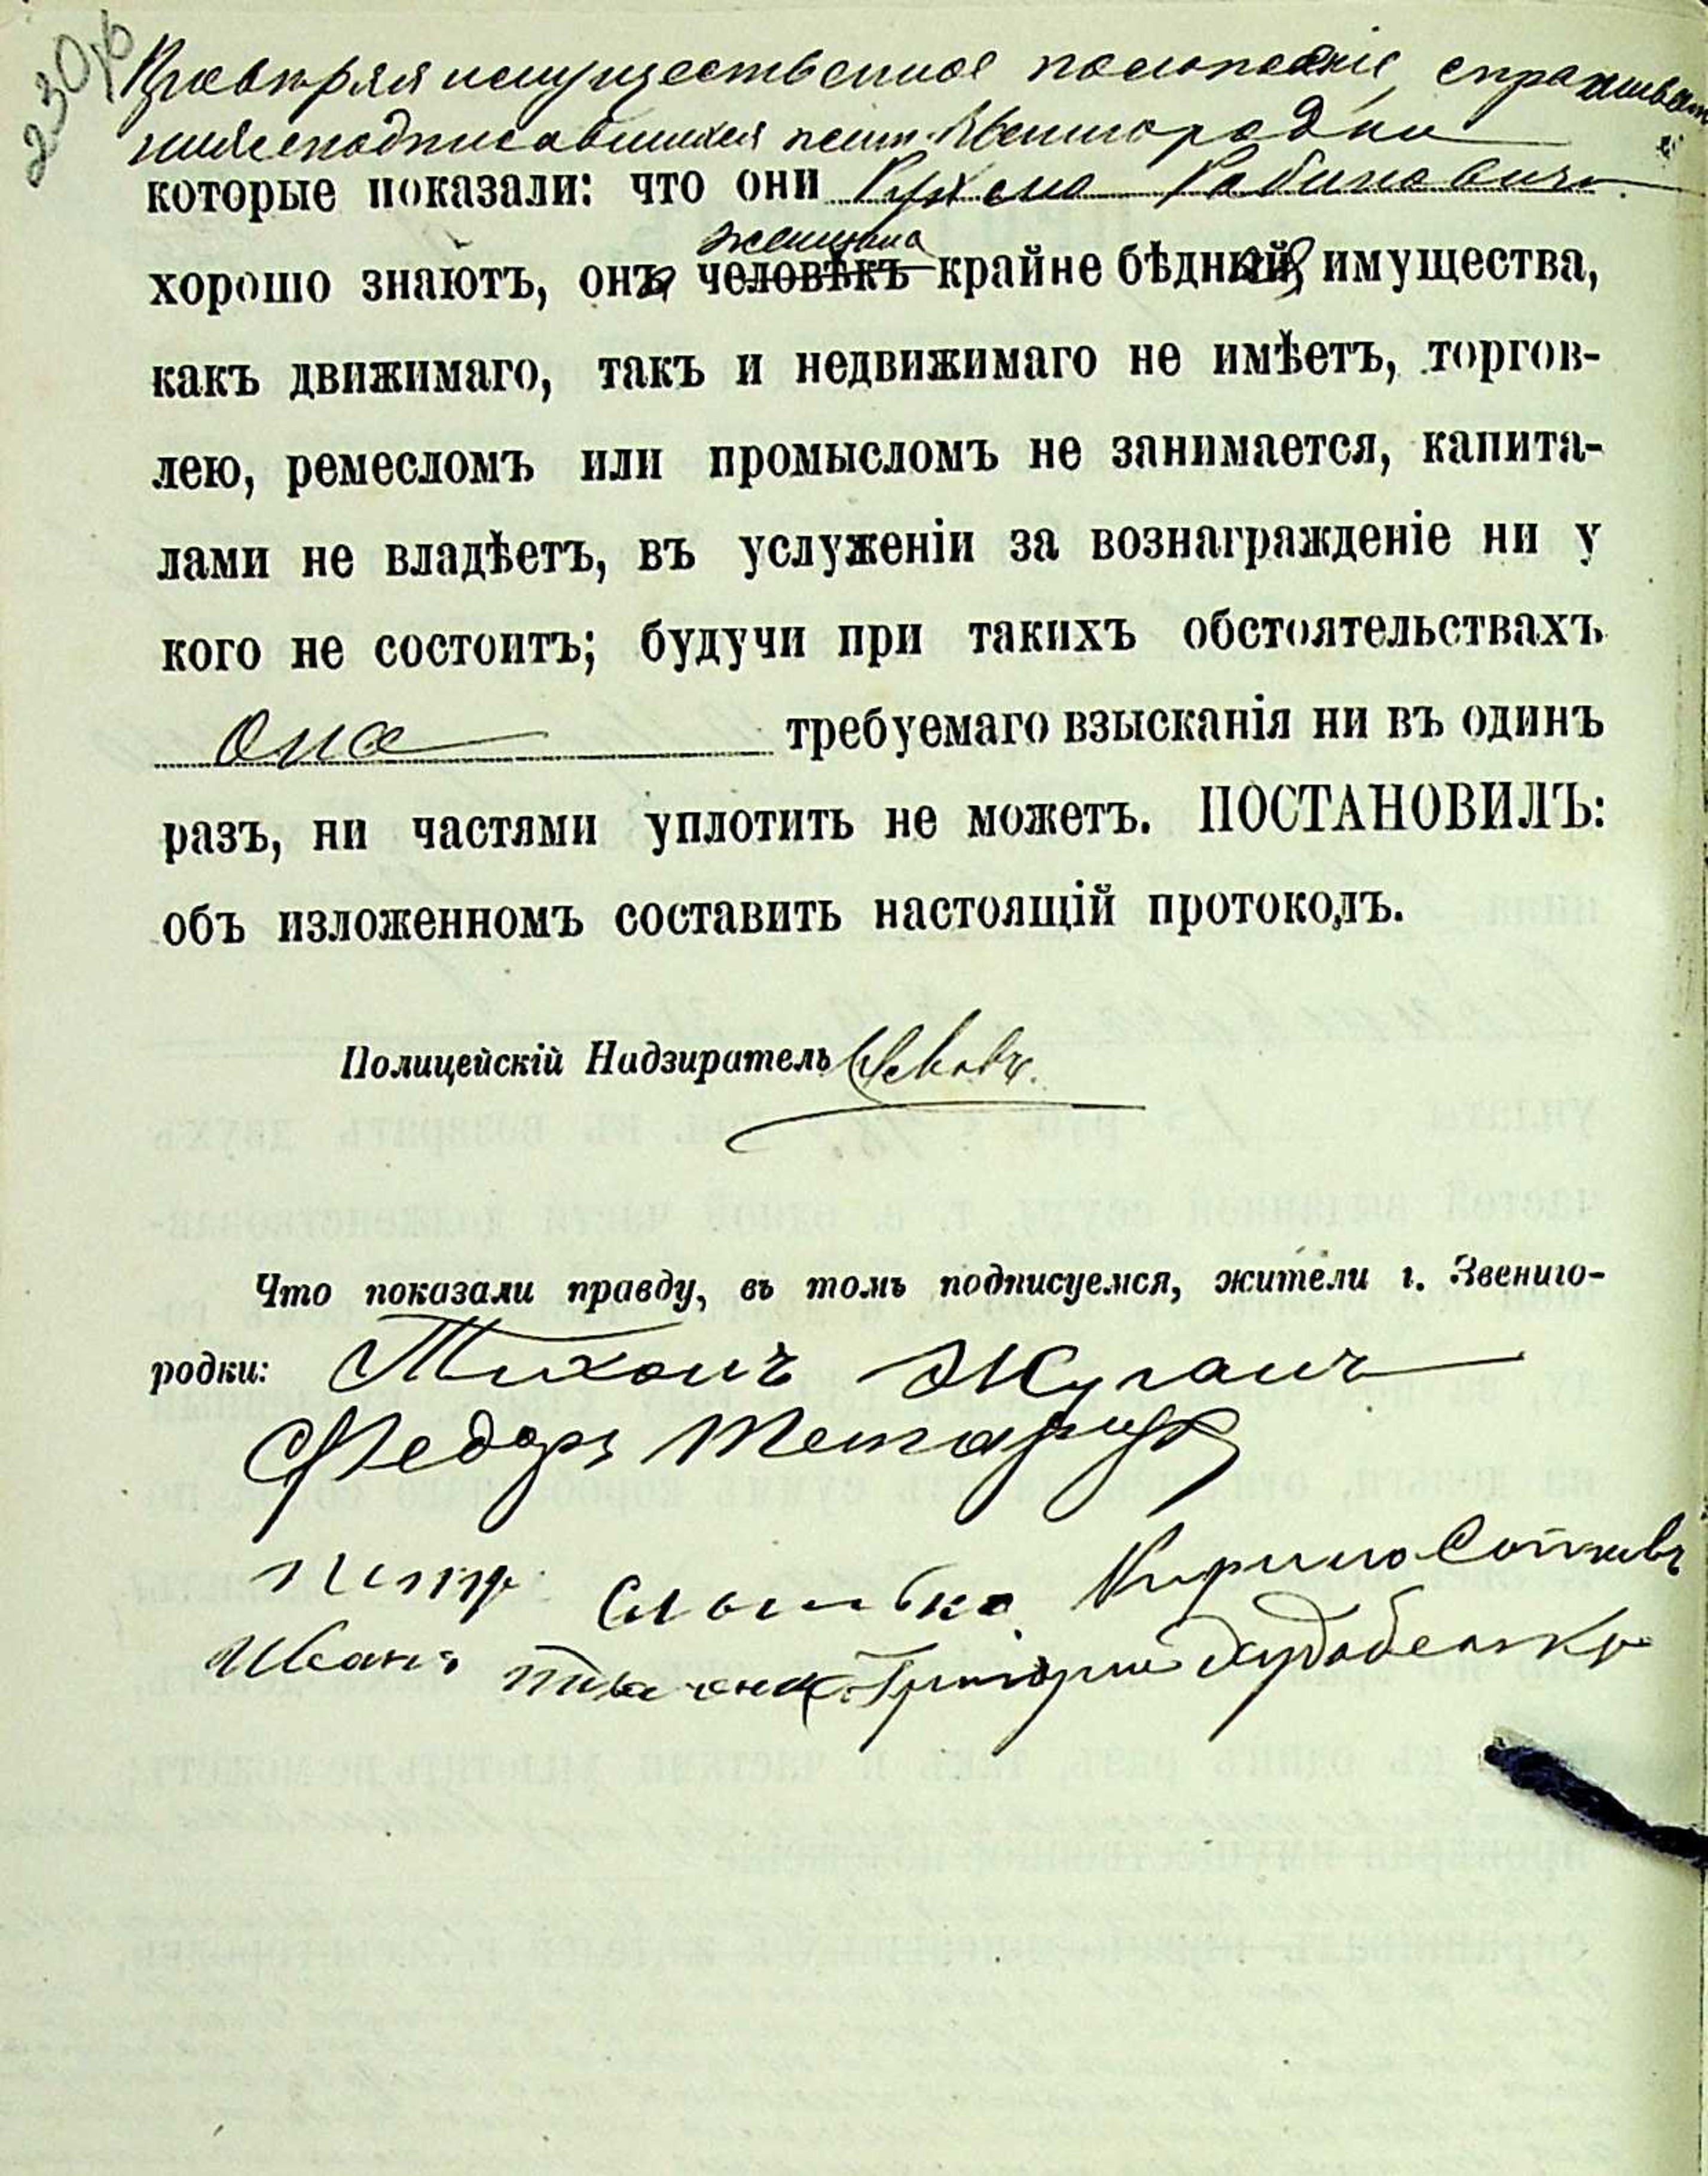 230 об
Провѣряя имущественное положеніе, спрашивалъ
нижеподписавшихся жит. Звенигородки
которые показали: что они Рухлю Рабиновичъ
женщина
хорошо знаютъ, она человѣкъ крайне бѣдная, имущества,
какъ движимаго, такъ и недвижимаго не имѣетъ, торгов-
лею, ремесломъ или промысломъ не занимается, капита-
лами не владѣетъ, въ услуженіи за вознагражденіе ни у
кого не состоитъ; будучи при такихъ обстоятельствахъ
она требуемаго взысканія ни въ одинъ
разъ, ни частями уплотить не можетъ. ПОСТАНОВИЛЪ:
объ изложенномъ составить настоящій протоколъ.
Полицейскій Надзиратель
Что показали правду, въ томъ подписуемся, жители г. Звениго-
родки: Тихонъ Жуганъ
Федоръ
Петръ Кирило
Иванъ Григорій